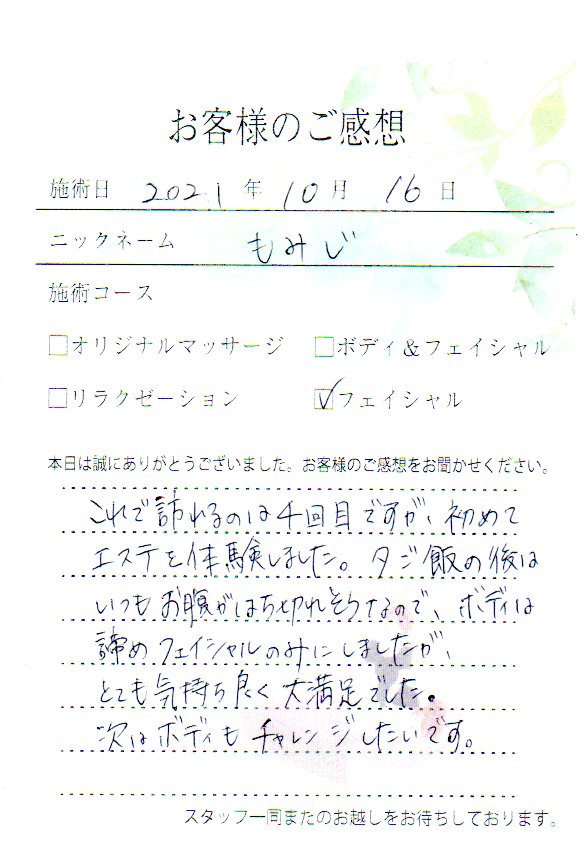 お客様のご感想
施術日 2021年10月16日
ニックネーム もみじ
施術コース
□オリジナルマッサージ □ボディ&フェイシャル
□リラクゼーション ☑フェイシャル
本日は誠にありがとうございました。お客様のご感想をお聞かせください。
これで訪れるのは4回目ですが、初めて
エステを体験しました。夕ご飯の後は
いつもお腹がはち切れそうなので、ボディは
諦めフェイシャルのみにしましたが、
とても気持ち良く大満足でした。
次はボディもチャレンジしたいです。
スタッフ一同またのお越しをお待ちしております。